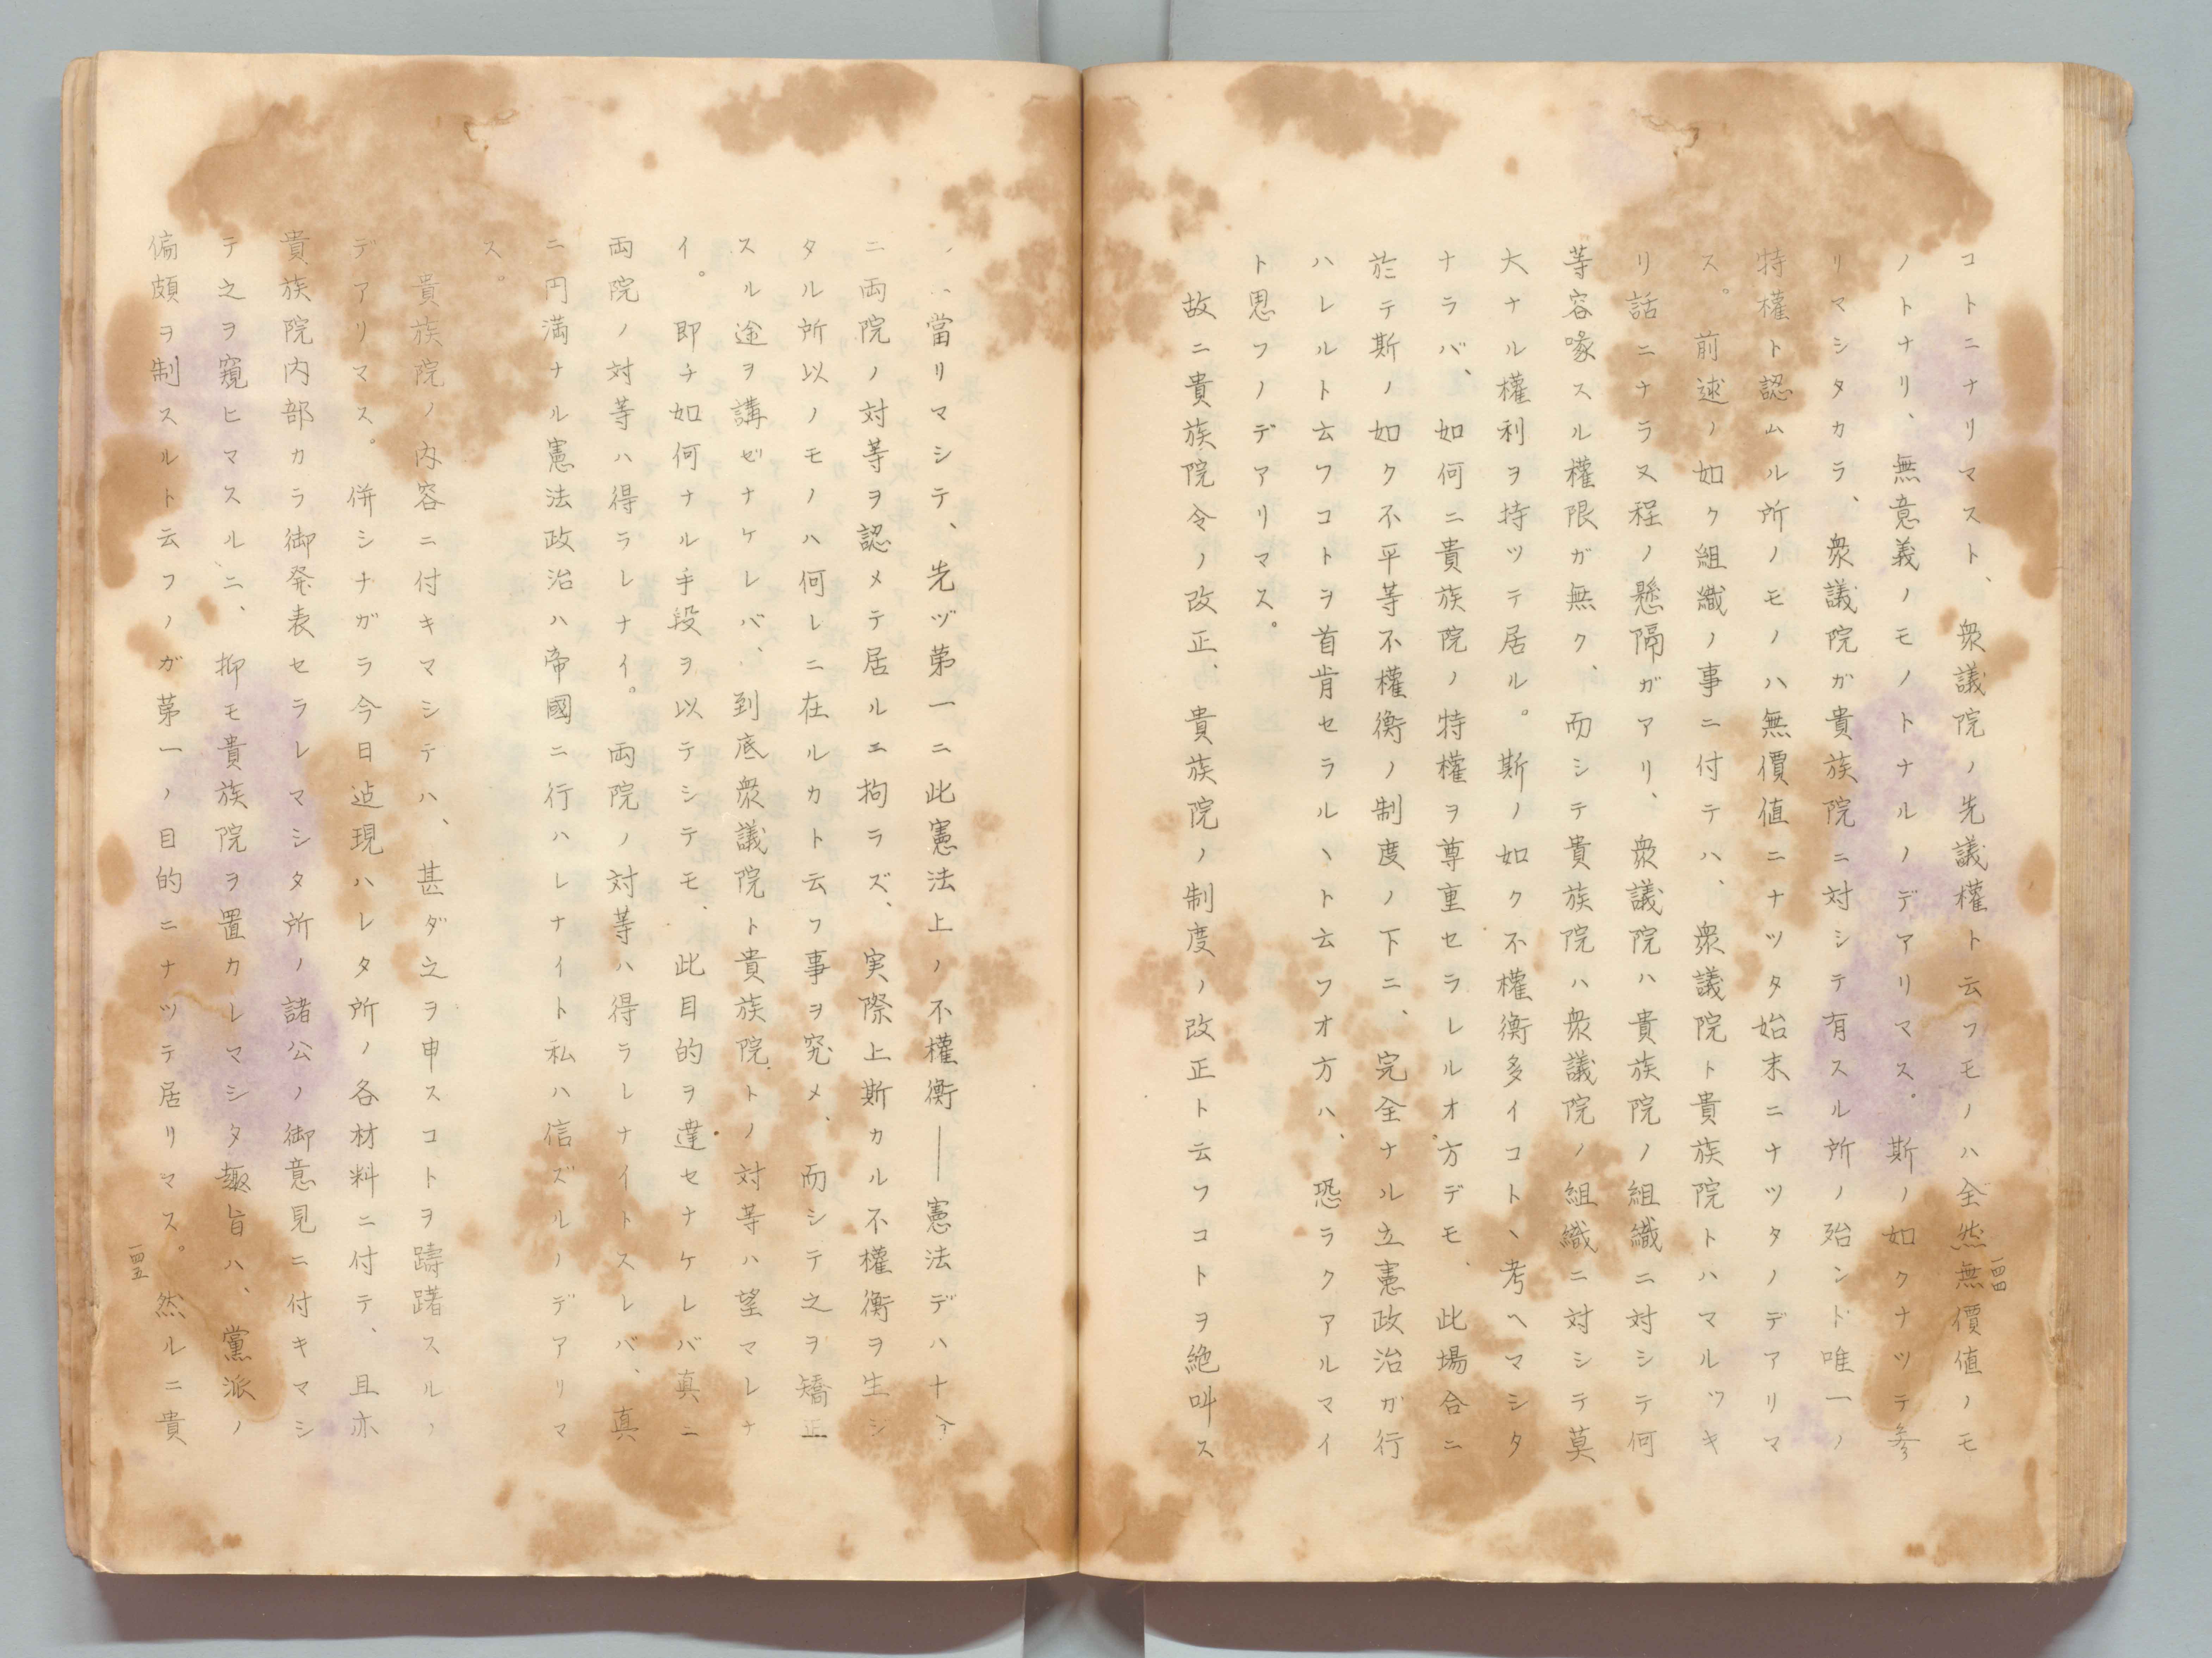 コトニナリマスト、衆議院ノ先議權ト云フモノハ全然無價値ノモ
ノトナリ、無意義ノモノトナルノデアリマス。斯ノ如クナツテ参
リマシタカラ、衆議院ガ貴族院ニ対シテ有スル所ノ殆ンド唯一ノ
特權ト認ムル所ノモノハ無價値ニナツタ始末ニナツタノデアリマ
ス。前述ノ如ク組織ノ事ニ付テハ、衆議院ト貴族院トハマルツキ
リ話ニナラヌ程ノ懸隔ガアリ、衆議院ハ貴族院ノ組織ニ対シテ何
等容喙スル權限ガ無ク、而シテ貴族院ハ衆議院ノ組織ニ対シテ莫
大ナル權利ヲ持ツテ居ル。斯ノ如ク不權衡多イコトヽ考ヘマシタ
ナラバ、如何ニ貴族院ノ特權ヲ尊重セラレルオ方デモ、此場合ニ
於テ斯ノ如ク不平等不權衡ノ制度ノ下ニ、完全ナル立憲政治ガ行
ハレルト云フコトヲ首肯セラルヽト云フオ方ハ、恐ラクアルマイ
ト思フノデアリマス。
故ニ貴族院令ノ改正、貴族院ノ制度ノ改正ト云フコトヲ絶叫ス
一四四
ノハ當リマシテ、先ヅ第一ニ此憲法上ノ不權衡――憲法デハ十分
ニ両院ノ対等ヲ認メテ居ルニ拘ラズ、実際上斯カル不權衡ヲ生ジ
タル所以ノモノハ何レニ在ルカト云フ事ヲ究メ、而シテ之ヲ矯正
スル途ヲ講ゼナケレバ、到底衆議院ト貴族院トノ対等ハ望マレナ
イ。即チ如何ナル手段ヲ以テシテモ、此目的ヲ達セナケレバ真ニ
両院ノ対等ハ得ラレナイ。両院ノ対等ハ得ラレナイトスレバ、真
ニ円満ナル憲法政治ハ帝國ニ行ハレナイト私ハ信ズルノデアリマ
ス。
貴族院ノ内容ニ付キマシテハ、甚ダ之ヲ申スコトヲ躊躇スルノ
デアリマス。併シナガラ今日迠現ハレタ所ノ各材料ニ付テ、且亦
貴族院内部カラ御発表セラレマシタ所ノ諸公ノ御意見ニ付キマシ
テ之ヲ窺ヒマスルニ、抑モ貴族院ヲ置カレマシタ趣旨ハ、黨派ノ
偏頗ヲ制スルト云フノガ第一ノ目的ニナツテ居リマス。然ルニ貴
一四五